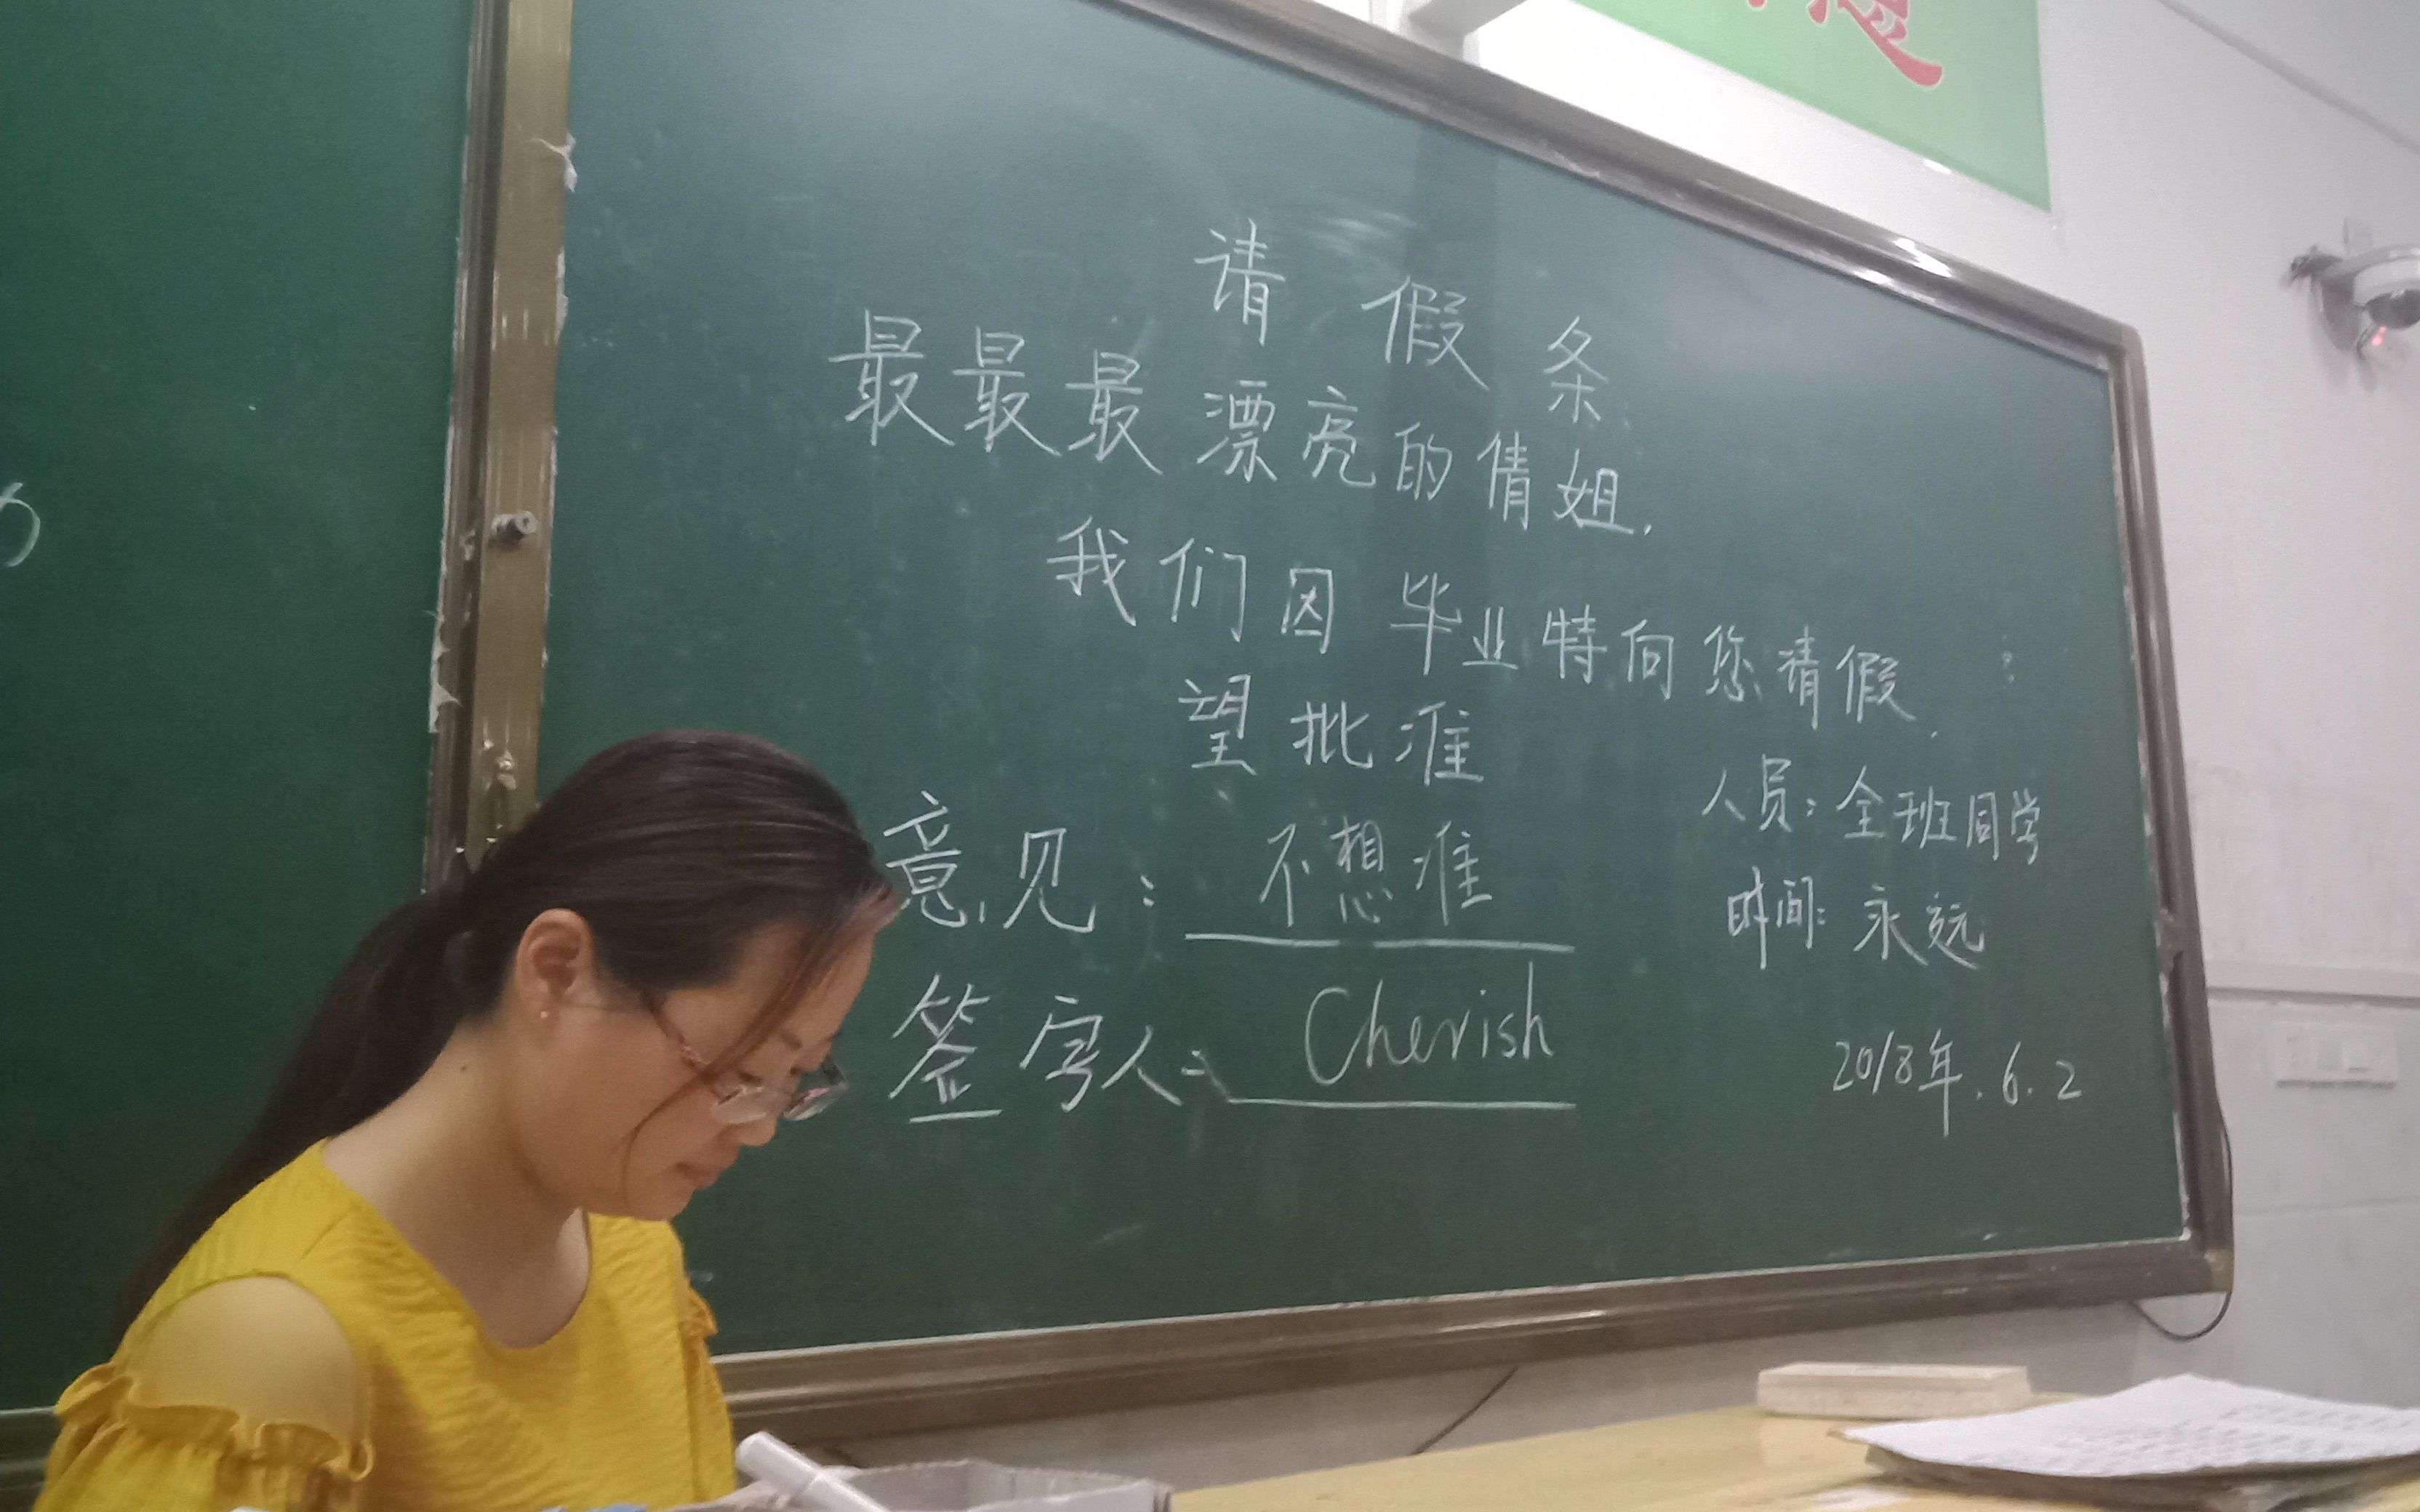 请假条
最最最漂亮的倩姐.
我们因毕业特向您请假.
望批准
人员:全班同学
时间:永远
意见:不想准
签字人:Cherish
2018年.6.2